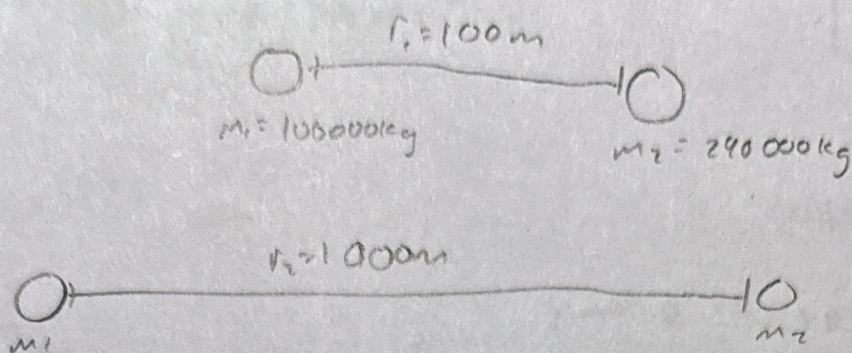 r₁=100m
m₁=100000kg
m₂=240000kg
r₂=1000m
m1
m₂